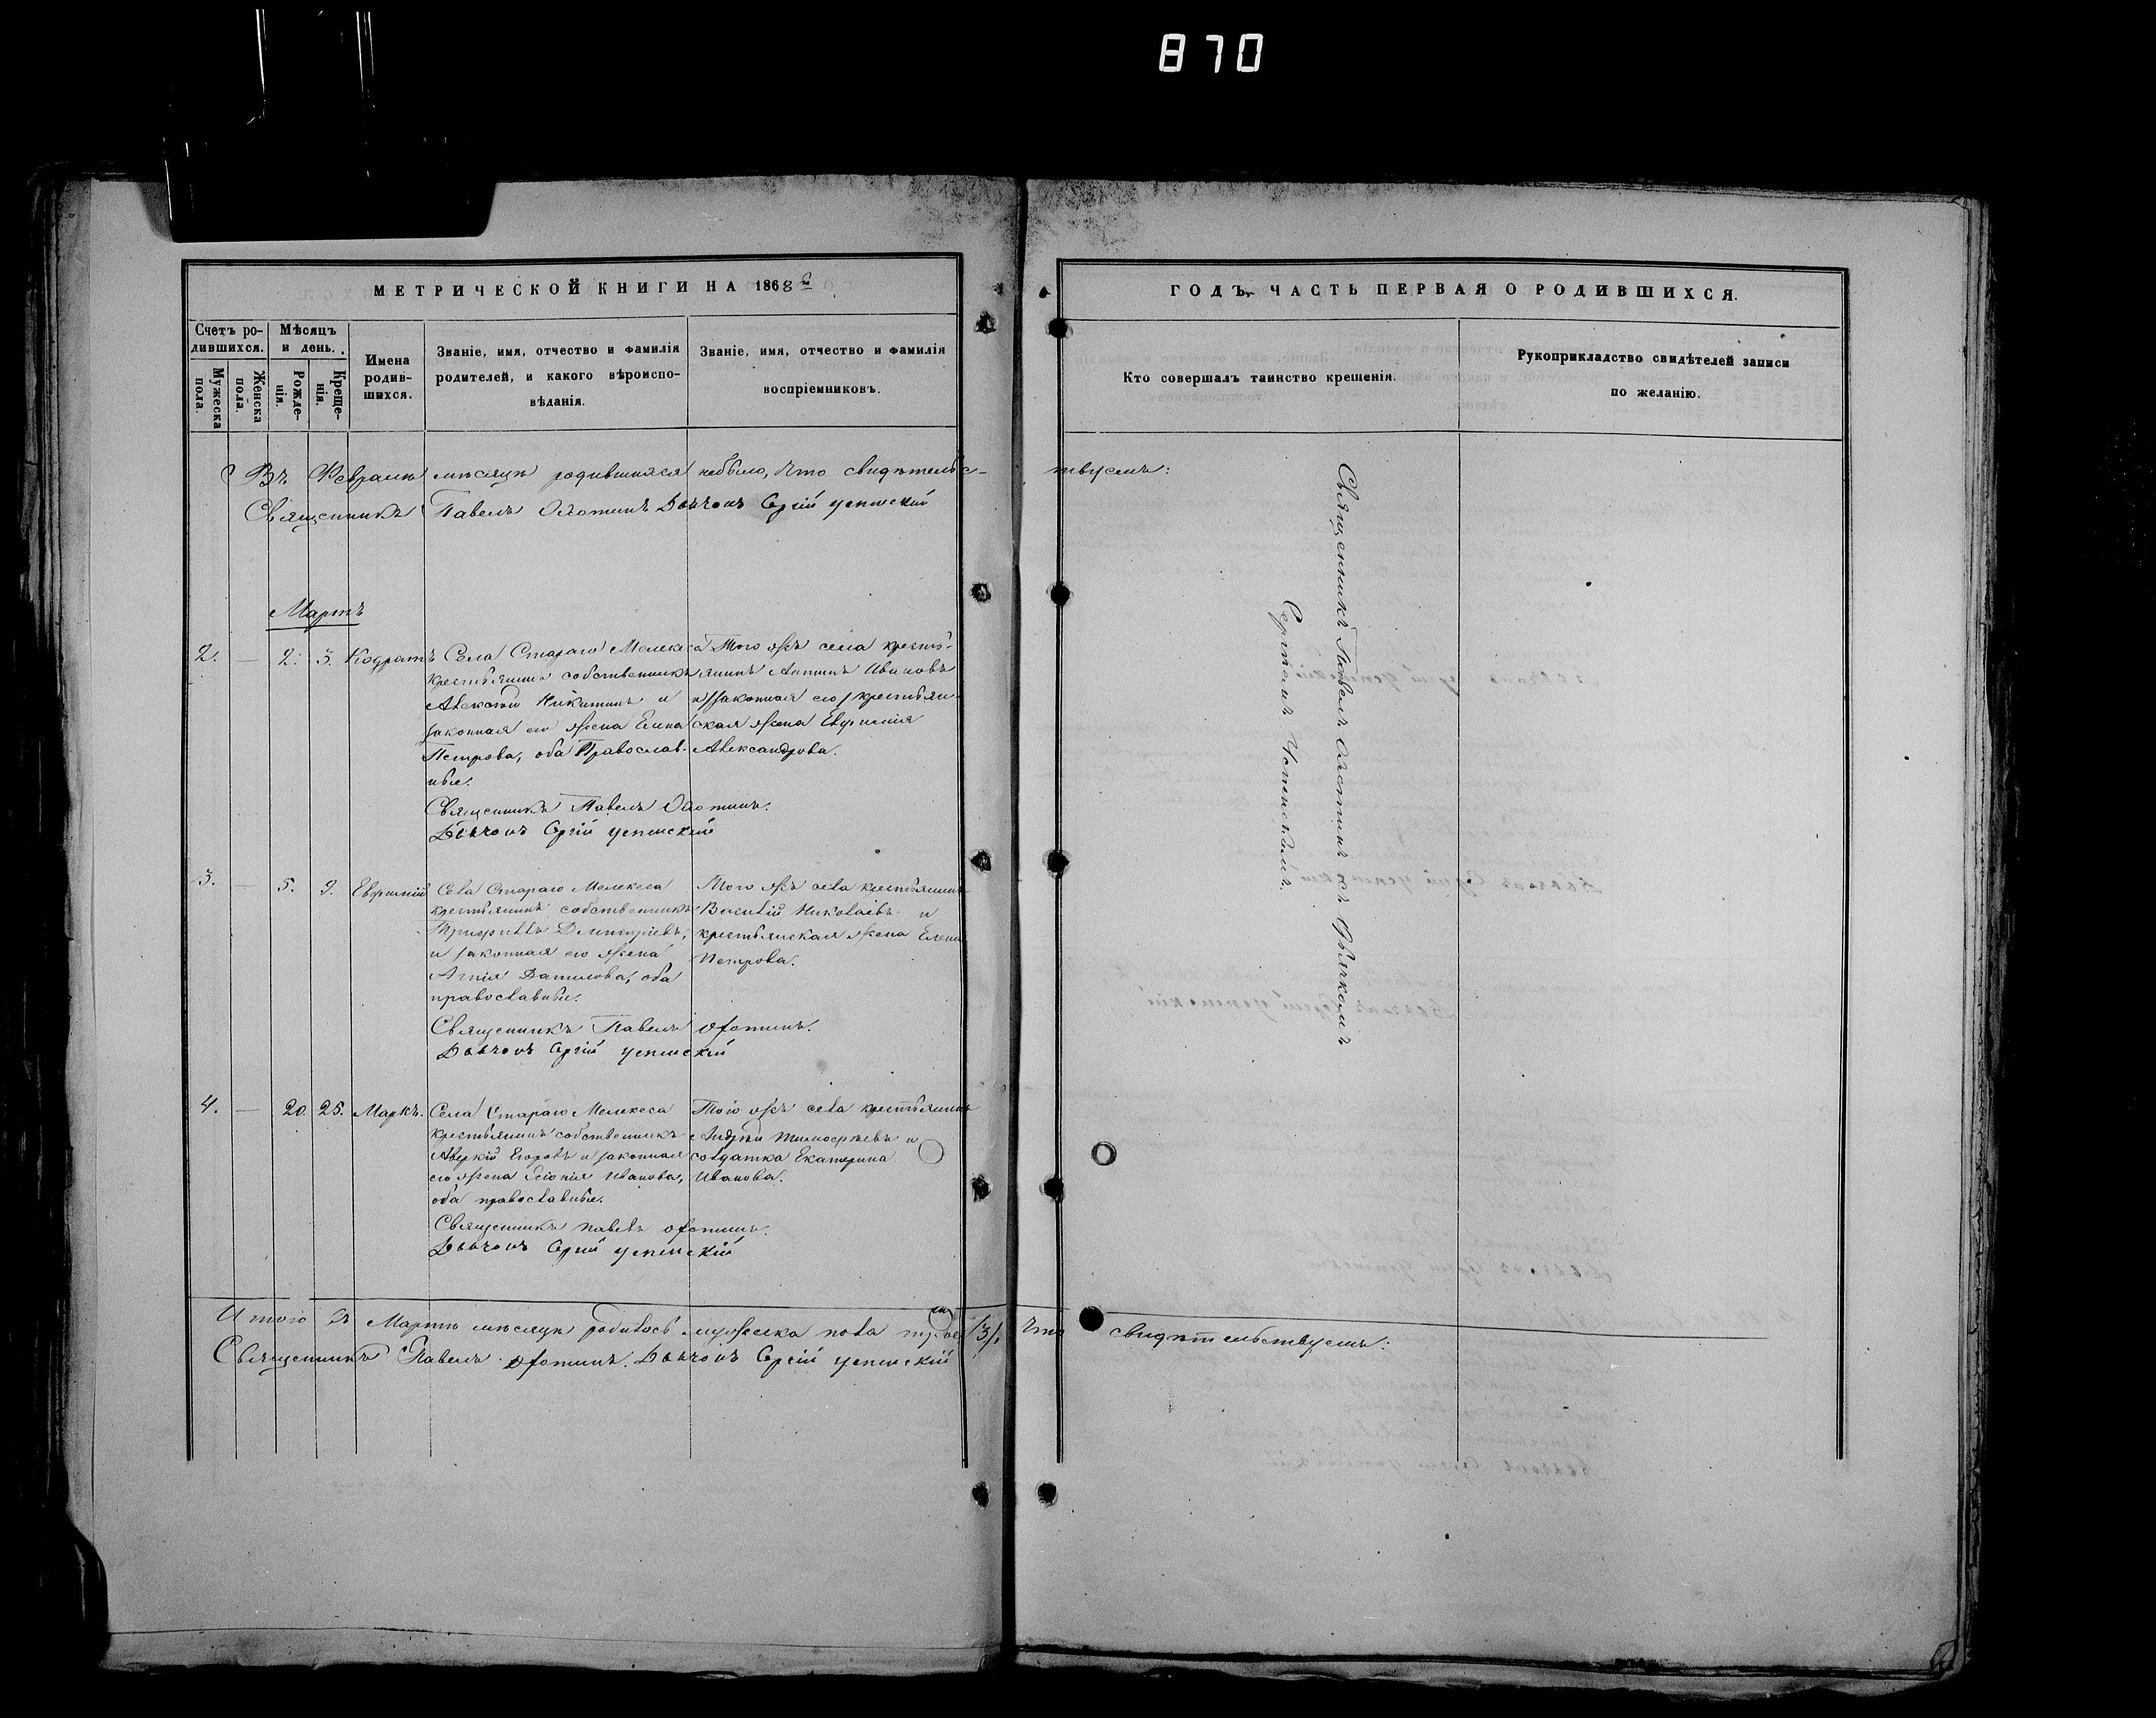 870
МЕТРИЧЕСКОЙ КНИГИ НА 1868й
Счетъ ро-
дившихся.
Мѣсяцъ
и день.
Мужеска
пола.
Женска
пола.
Рожде-
нія.
Креще-
нія.
Имена
родив-
шихся.
Званіе, имя, отчество и фамилія
родителей, и какого вѣроиспо-
вѣданія.
Званіе, имя, отчество и фамилія
воспріемниковъ.
Въ Февралѣ мѣсяцѣ родившихся небыло, что свидѣтельс-
Священникъ Павелъ Дьячокъ Сергій Успенскій
Мартъ
2. — 2. 3. Кодратъ
Села Стараго Мелекеса
крестьянинъ собственникъ
Алексѣй Никитинъ и
законная его жена Елена
Петрова, оба Православ-
ные.
Того жъ села кресть-
янинъ Антипъ Ивановъ
и законная его крестьян-
ская жена Евфимія
Александрова.
Священникъ Павелъ
Дьячокъ Сергій Успенскій
3. — 5. 9. Евфимій
Села Стараго Мелекеса
крестьянинъ собственникъ
Трифиллъ Димитріевъ,
и законная его жена
Агнія Данилова, оба
православные.
Того жъ села крестьянинъ
Василій Николаевъ и
крестьянская жена Елена
Петрова.
Священникъ Павелъ
Дьячокъ Сергій Успенскій
4. — 20. 25. Маркъ.
Села Стараго Мелекеса
крестьянинъ собственникъ
Аверкій Егоровъ и законная
его жена Иванова,
оба православные.
Того жъ села крестьянинъ
Андрей Тимофѣевъ и
солдатка Екатерина
Иванова.
Священникъ Павелъ
Дьячокъ Сергій Успенскій
Итого въ Мартѣ мѣсяцѣ родилось мужеска пола трое /3/, что
Священникъ Павелъ Дьячокъ Сергій Успенскій
ГОДЪ, ЧАСТЬ ПЕРВАЯ О РОДИВШИХСЯ.
Кто совершалъ таинство крещенія.
Рукоприкладство свидѣтелей записи
по желанію.
твуемъ:
Священникъ Павелъ съ дьячкомъ
Сергѣемъ Успенскимъ.
свидѣтельствуемъ: